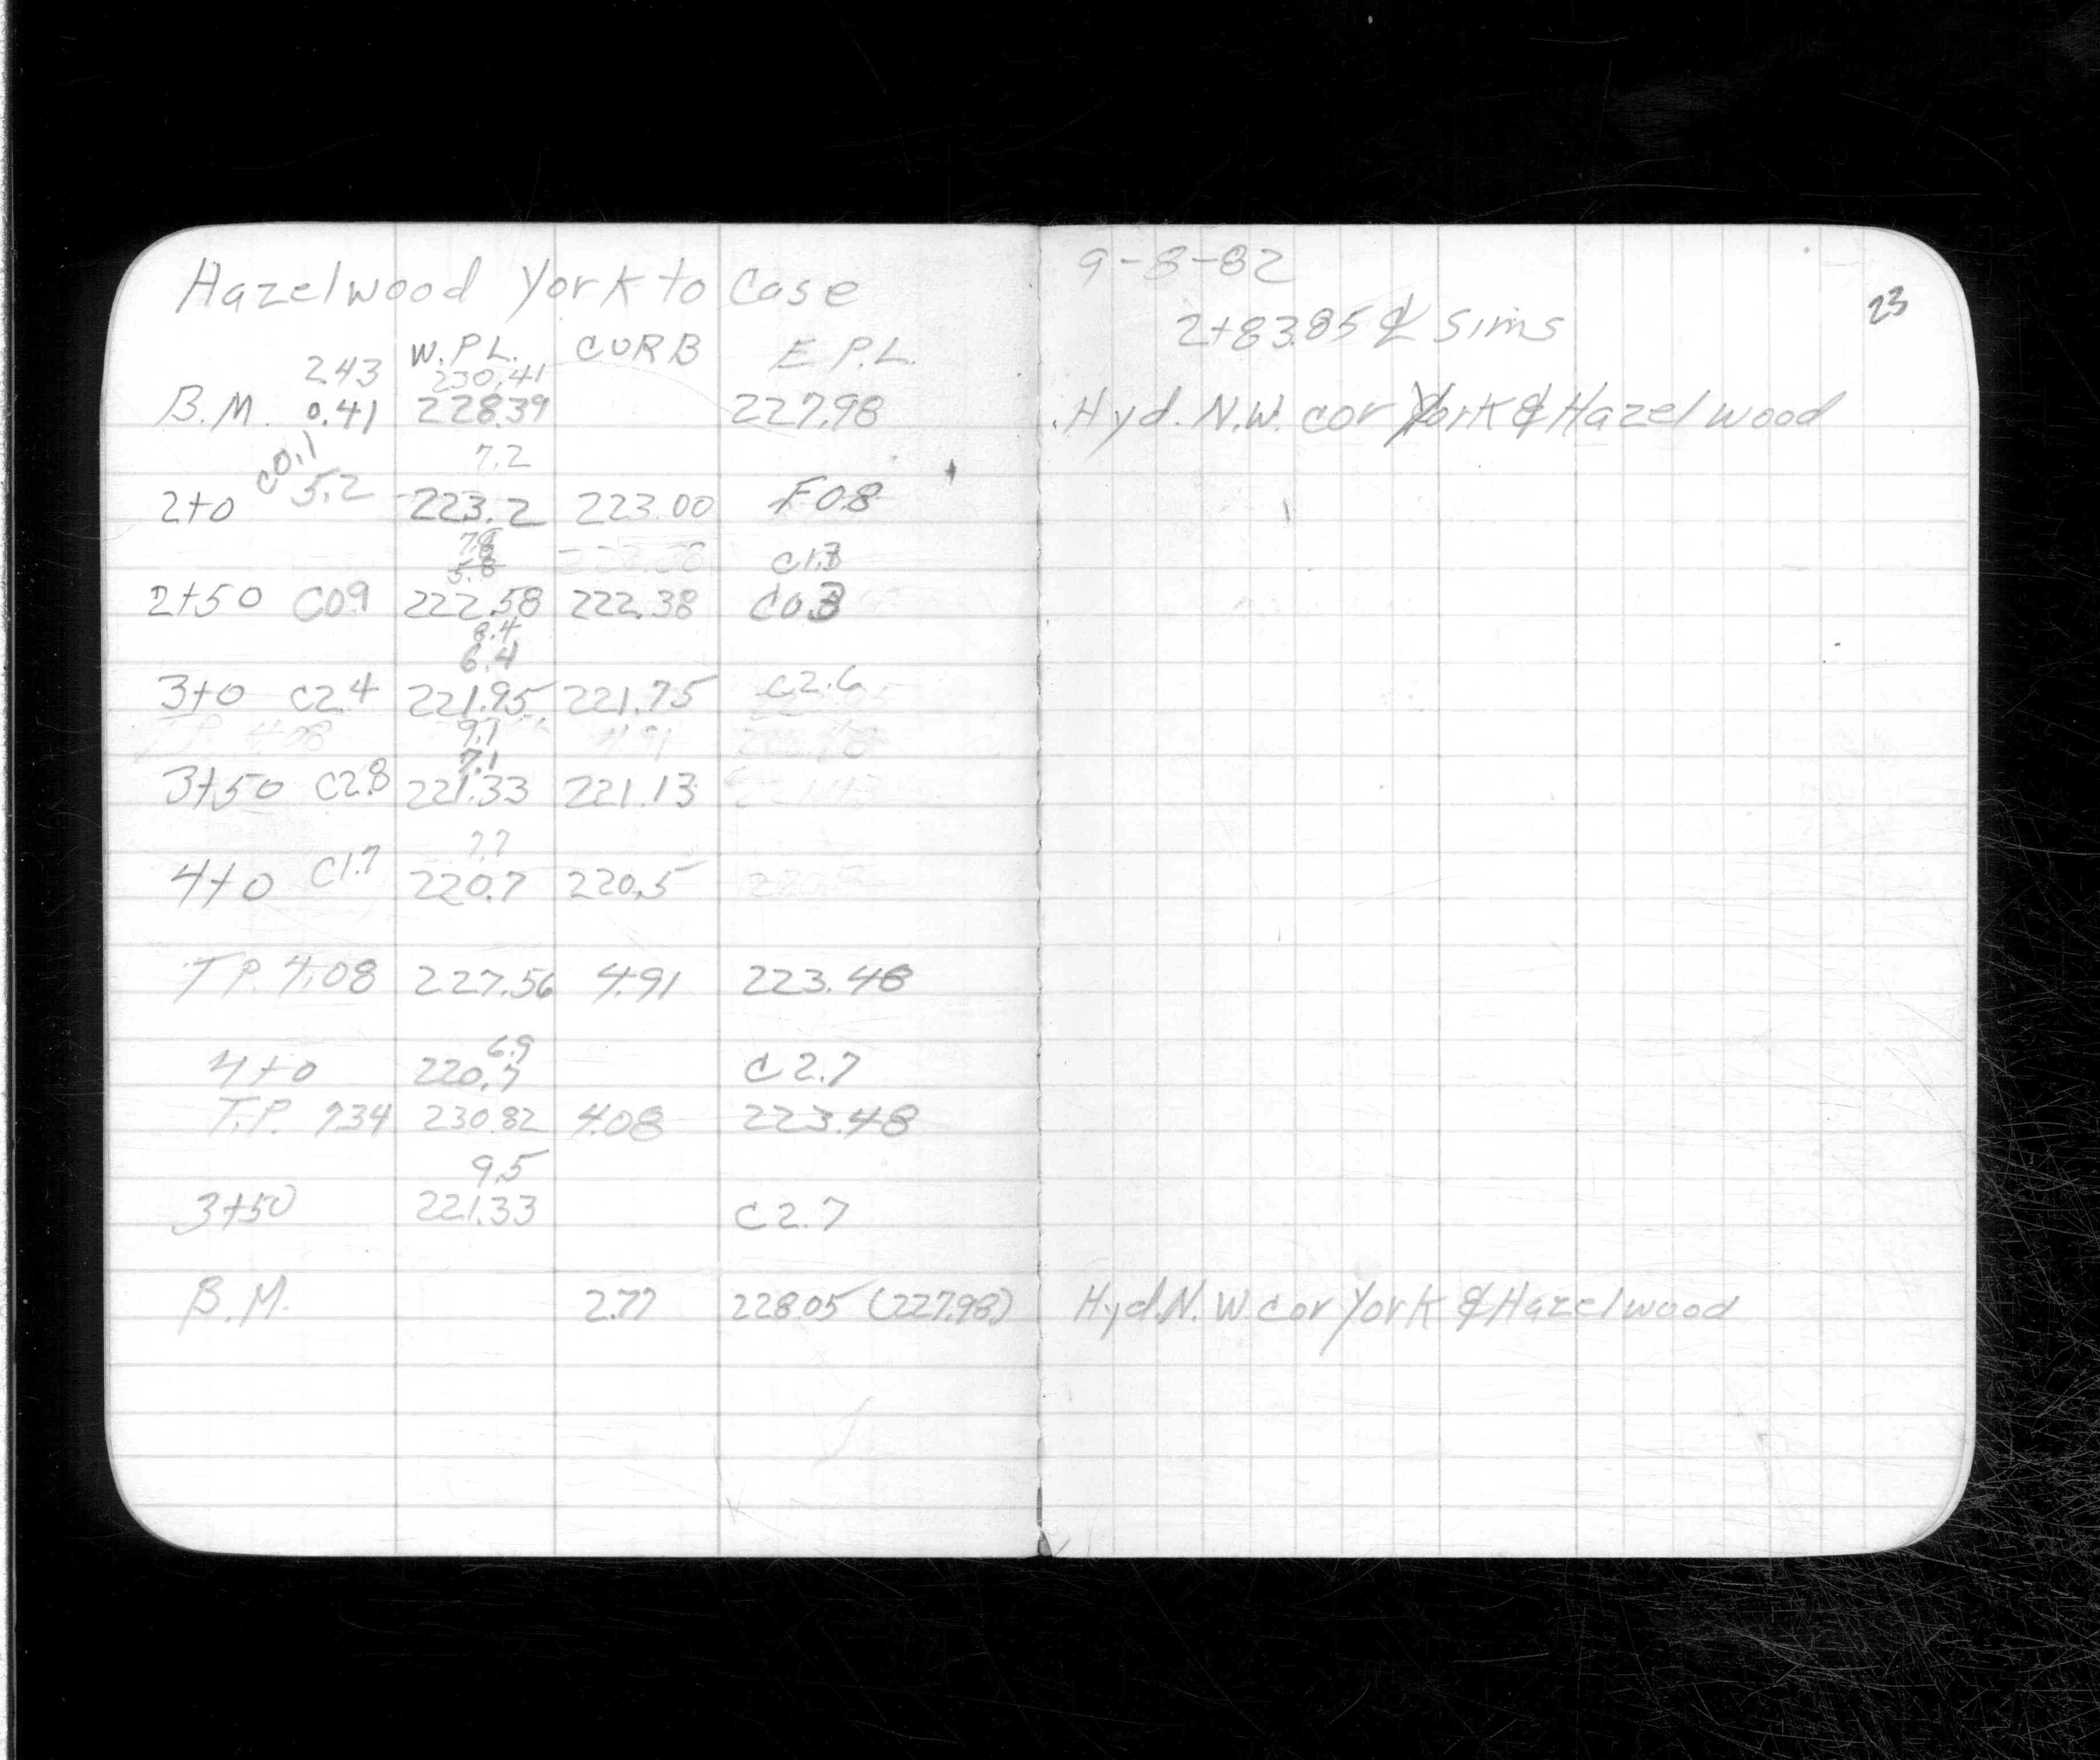 Hazelwood York to Case
W.P.L. CURB E P.L.
2.43 230.41
B.M. 0.41 228.39 227.98
7.2
2+0 C0.1 5.2 223.2 223.00 F0.8
7.8
5.8 C1.3
2+50 C0.9 222.58 222.38 C0.3
8.4
6.4
3+0 C2.4 221.95 221.75 C2.6
9.1
7.1
3+50 C2.8 221.33 221.13
7.7
4+0 C1.7 220.7 220.5
T.P. 4.08 227.56 4.91 223.48
6.9
4+0 220.7 C2.7
T.P. 7.34 230.82 4.08 223.48
9.5
3+50 221.33 C2.7
B.M. 2.77 228.05 (227.98)
9-8-82
23
2+83.85 ₵ Sims
Hyd. N.W. cor York & Hazelwood
Hyd. N.W cor York & Hazelwood